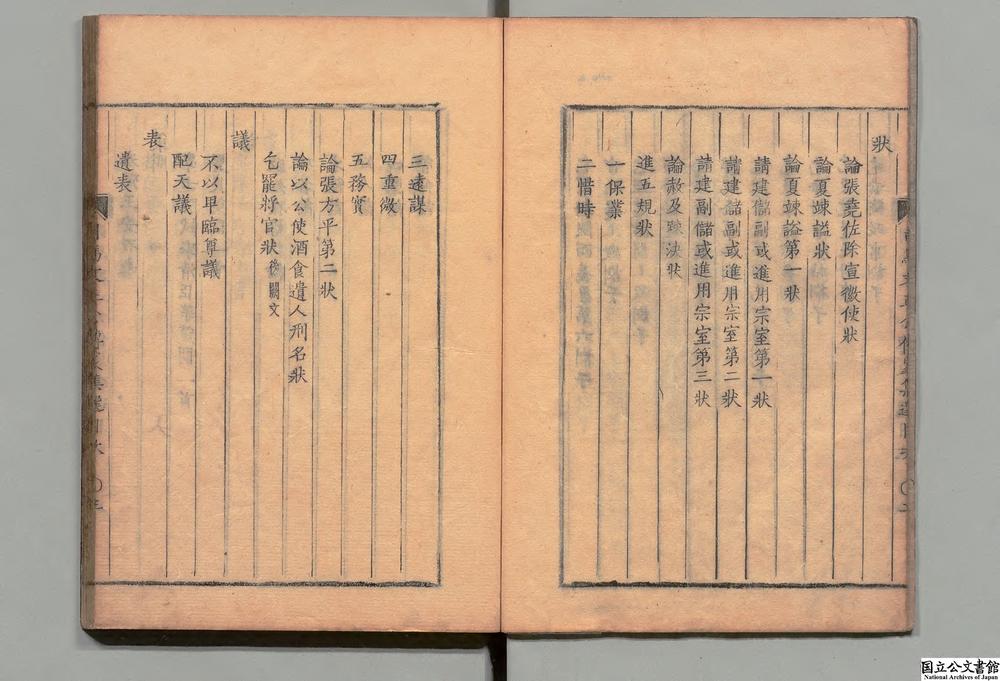 狀
論張堯佐除宣徽使狀
論夏竦謚狀
論夏竦謚第一狀
請建儲副或進用宗室第一狀
請建儲副或進用宗室第二狀
請建副儲或進用宗室第三狀
論赦及踈決狀
進五規狀
一保業
二惜時
三遠謀
四重微
五務實
論張方平第二狀
論以公使酒食遺人刑名狀
乞罷將官狀後闕文
議
不以卑臨尊議
配天議
表
遺表
国立公文書館
National Archives of Japan